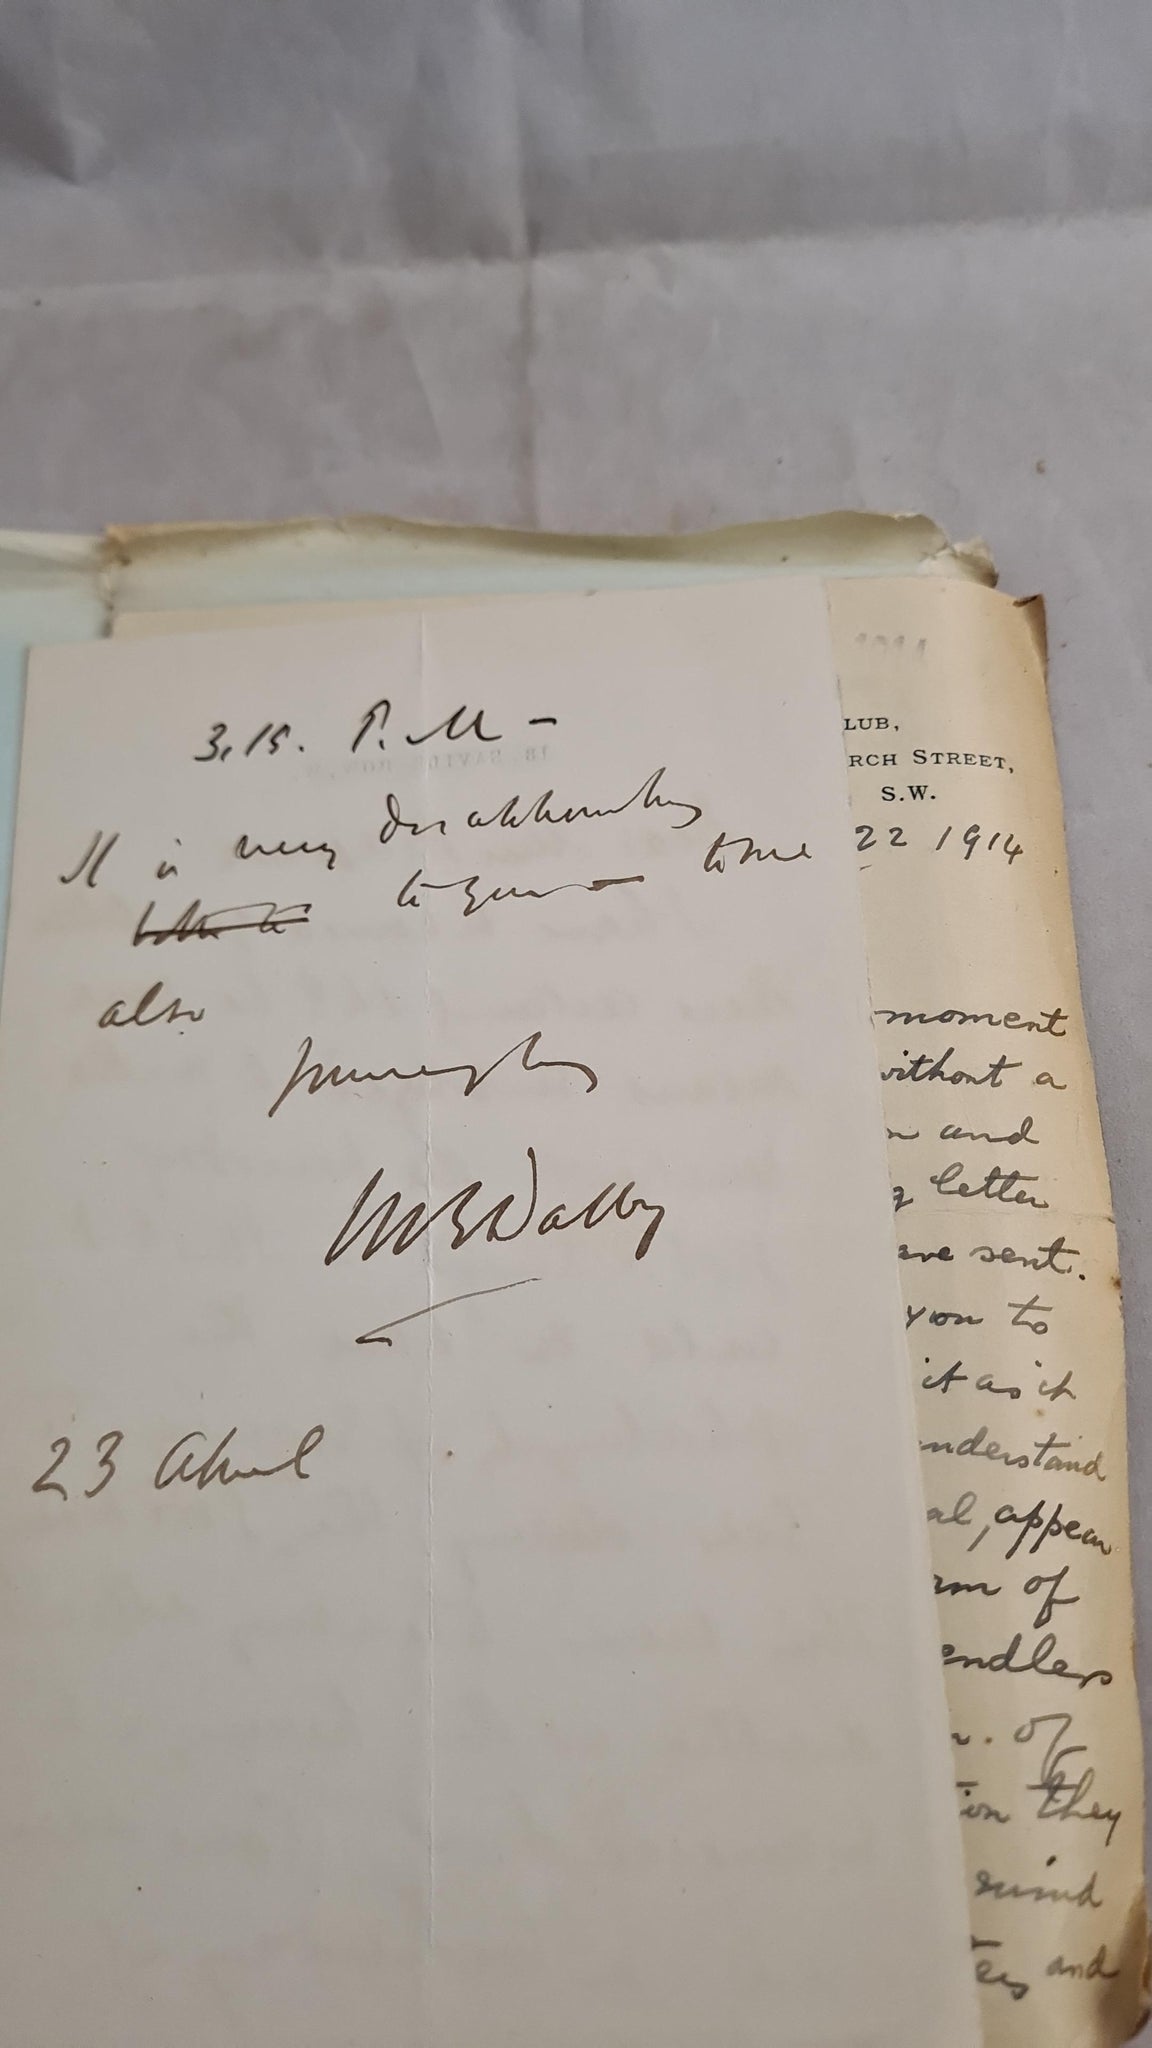 3.15. P.M –
It is very disappointing
to you – to me
also
Yours very truly
W B Dalby
23 April
LUB,
RCH STREET,
S.W.
22 1914
moment
without a
and
letter
sent.
you to
it as it
understand
appear
of
endless
of
they
mind
and